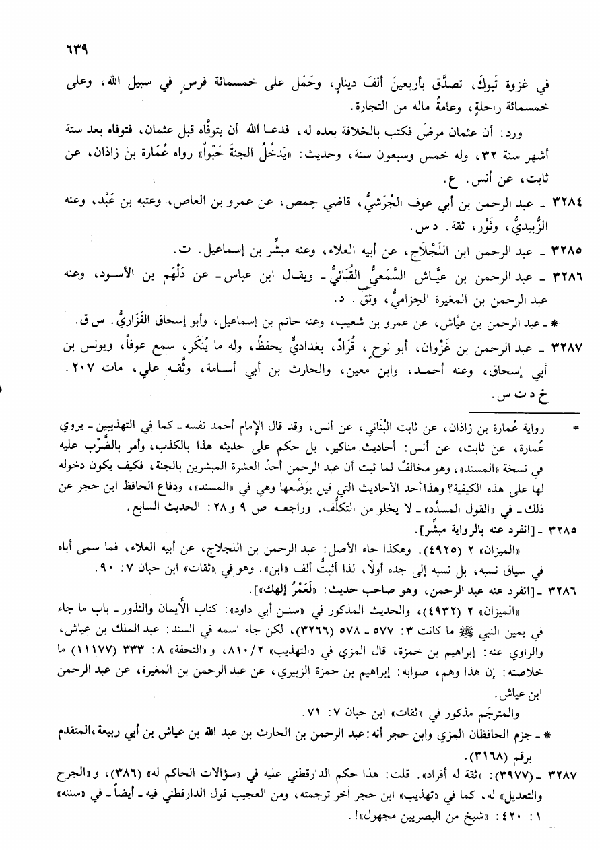 ٦٣٩
في غزوة تَبوكَ، تصدَّق بأربعينَ ألفَ دينارٍ، وحَمَل على خمسمائة فرسٍ في سبيل الله، وعلى
خمسمائة راحلةٍ، وعامةُ ماله من التجارة.
ورد: أن عثمان مرضَ فكتب بالخلافة بعده له، فدعا الله أن يتوفَّاه قبل عثمان، فتوفاه بعد ستة
أشهر سنة ٣٢، وله خمس وسبعون سنة، وحديث: «يَدْخُلُ الجنةَ حَبْواً» رواه عُمَارة بن زاذان، عن
ثابت، عن أنس. ع.
٣٢٨٤ - عبد الرحمن بن أبي عوف الجُرَشيُّ، قاضي حِمص، عن عمرو بن العاص، وعتبه بن عَبْد، وعنه
الزُّبيديُّ، وثَوْر، ثقة. د س.
٣٢٨٥ - عبد الرحمن ابن اللَّجْلاج، عن أبيه العلاء، وعنه مبشِّر بن إسماعيل. ت.
٣٢٨٦ - عبد الرحمن بن عيَّاش السَّمَعيُّ القُبَائيُّ - ويقال ابن عباس - عن دَلْهَم بن الأسود، وعنه
عبد الرحمن بن المغيرة الجزاميُّ، وثِّق. د.
* - عبد الرحمن بن عيَّاش، عن عمرو بن شعيب، وعنه حاتم بن إسماعيل، وأبو إسحاق الفَزَاريُّ. س ق.
٣٢٨٧ - عبد الرحمن بن غَزْوان، أبو نوح، قُرَادٌ، بغداديٌّ يحفظُ، وله ما يُنكَر، سمع عوفاً، ويونس بن
أبي إسحاق، وعنه أحمد، وابن معين، والحارث بن أبي أسامة، وثَّقه علي، مات ٢٠٧.
خ د ت س.
* رواية عُمارة بن زاذان، عن ثابت البُنَاني، عن أنس، وقد قال الإمام أحمد نفسه - كما في التهذيبين - يروي
عُمارة، عن ثابت، عن أنس: أحاديث مناكير، بل حكم على حديثه هذا بالكذب، وأمر بالضَّرْب عليه
في نسخة «المسند»، وهو مخالفٌ لما ثبت أن عبد الرحمن أحدُ العشرة المبشرين بالجنة، فكيف يكون دخوله
لها على هذه الكيفية؟ وهذا أحد الأحاديث التي قيل بوَضْعها وهي في «المسند»، ودفاع الحافظ ابن حجر عن
ذلك - في «القول المسدَّد» - لا يخلو من التكلُّف. وراجعه ص ٩ و ٢٨: الحديث السابع.
٣٢٨٥ - [انفرد عنه بالرواية مبشِّر].
«الميزان» ٢ (٤٩٢٥). وهكذا جاء الأصل: عبد الرحمن بن اللجلاج، عن أبيه العلاء، فما سمى أباه
في سياق نسبه، بل نسبه إلى جده أولًا، لذا أثبتُّ ألف «ابن». وهو في «ثقات» ابن حبان ٧: ٩٠.
٣٢٨٦ - [انفرد عنه عبد الرحمن، وهو صاحب حديث: «لَعَمْرُ إلهك»].
«الميزان» ٢ (٤٩٣٢)، والحديث المذكور في «سنن أبي داود»: كتاب الأيمان والنذور - باب ما جاء
في يمين النبي ﷺ ما كانت ٣: ٥٧٧ - ٥٧٨ (٣٢٦٦)، لكن جاء اسمه في السند: عبد الملك بن عياش،
والراوي عنه: إبراهيم بن حمزة، قال المزي في «التهذيب» ٨١٠/٢، و«التحفة» ٨: ٣٣٣ (١١١٧٧) ما
خلاصته: إن هذا وهم، صوابه: إبراهيم بن حمزة الزبيري، عن عبد الرحمن بن المغيرة، عن عبد الرحمن
ابن عياش.
والمترجَم مذكور في «ثقات» ابن حبان ٧: ٧١.
* - جزم الحافظان المزي وابن حجر أنه: عبد الرحمن بن الحارث بن عبد الله بن عياش بن أبي ربيعة، المتقدم
برقم (٣١٦٨).
٣٢٨٧ - (٣٩٧٧): «ثقة له أفراد». قلت: هذا حكم الدارقطني عليه في «سؤالات الحاكم له» (٣٨٦)، و«الجرح
والتعديل» له، كما في «تهذيب» ابن حجر آخر ترجمته، ومن العجيب قول الدارقطني فيه - أيضاً - في «سننه»
١: ٤٢٠: «شيخ من البصريين مجهول»!.